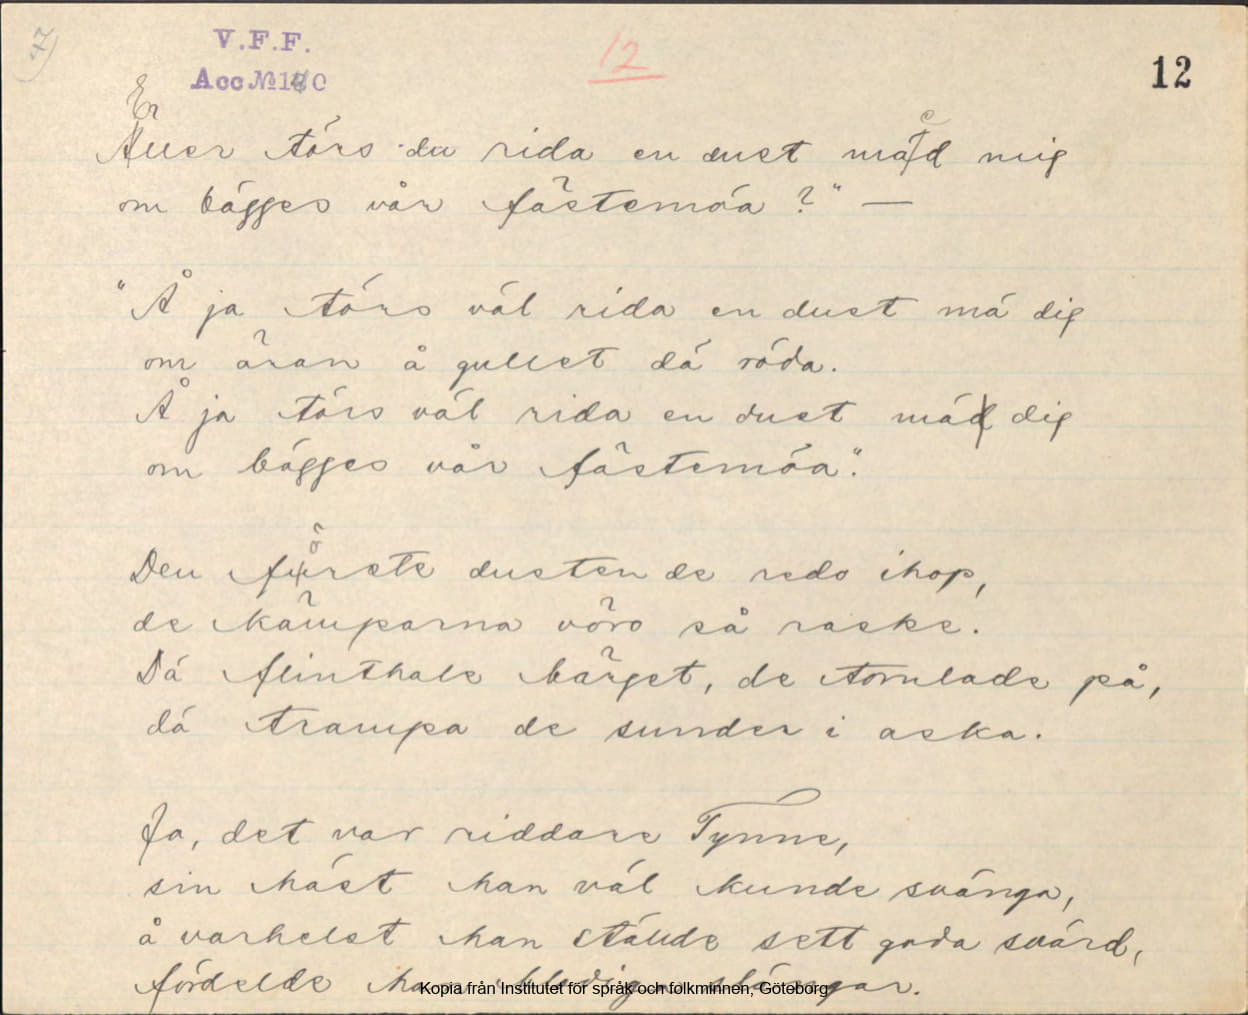 47
V.F.F.
Acc № 140
12
12
Er
Äller törs du rida en dust med mig
om bägges vår fästemöa?" —
"Å ja törs väl rida en dust mä dig
om äran å gullet dä röda.
Å ja törs väl rida en dust mä dig
om bägges vår fästemöa".
Den förste dusten de redo ihop,
de kämparna vöro så raske.
Dä flinthale bärget, de tornlade på,
dä trampa de sunder i aska.
Ja, det var riddare Tynne,
sin häst han väl kunde svänga,
å varhelst han stälde sett goda svärd,
fördelde han blodiga slängar.
Kopia från Institutet för språk och folkminnen, Göteborg